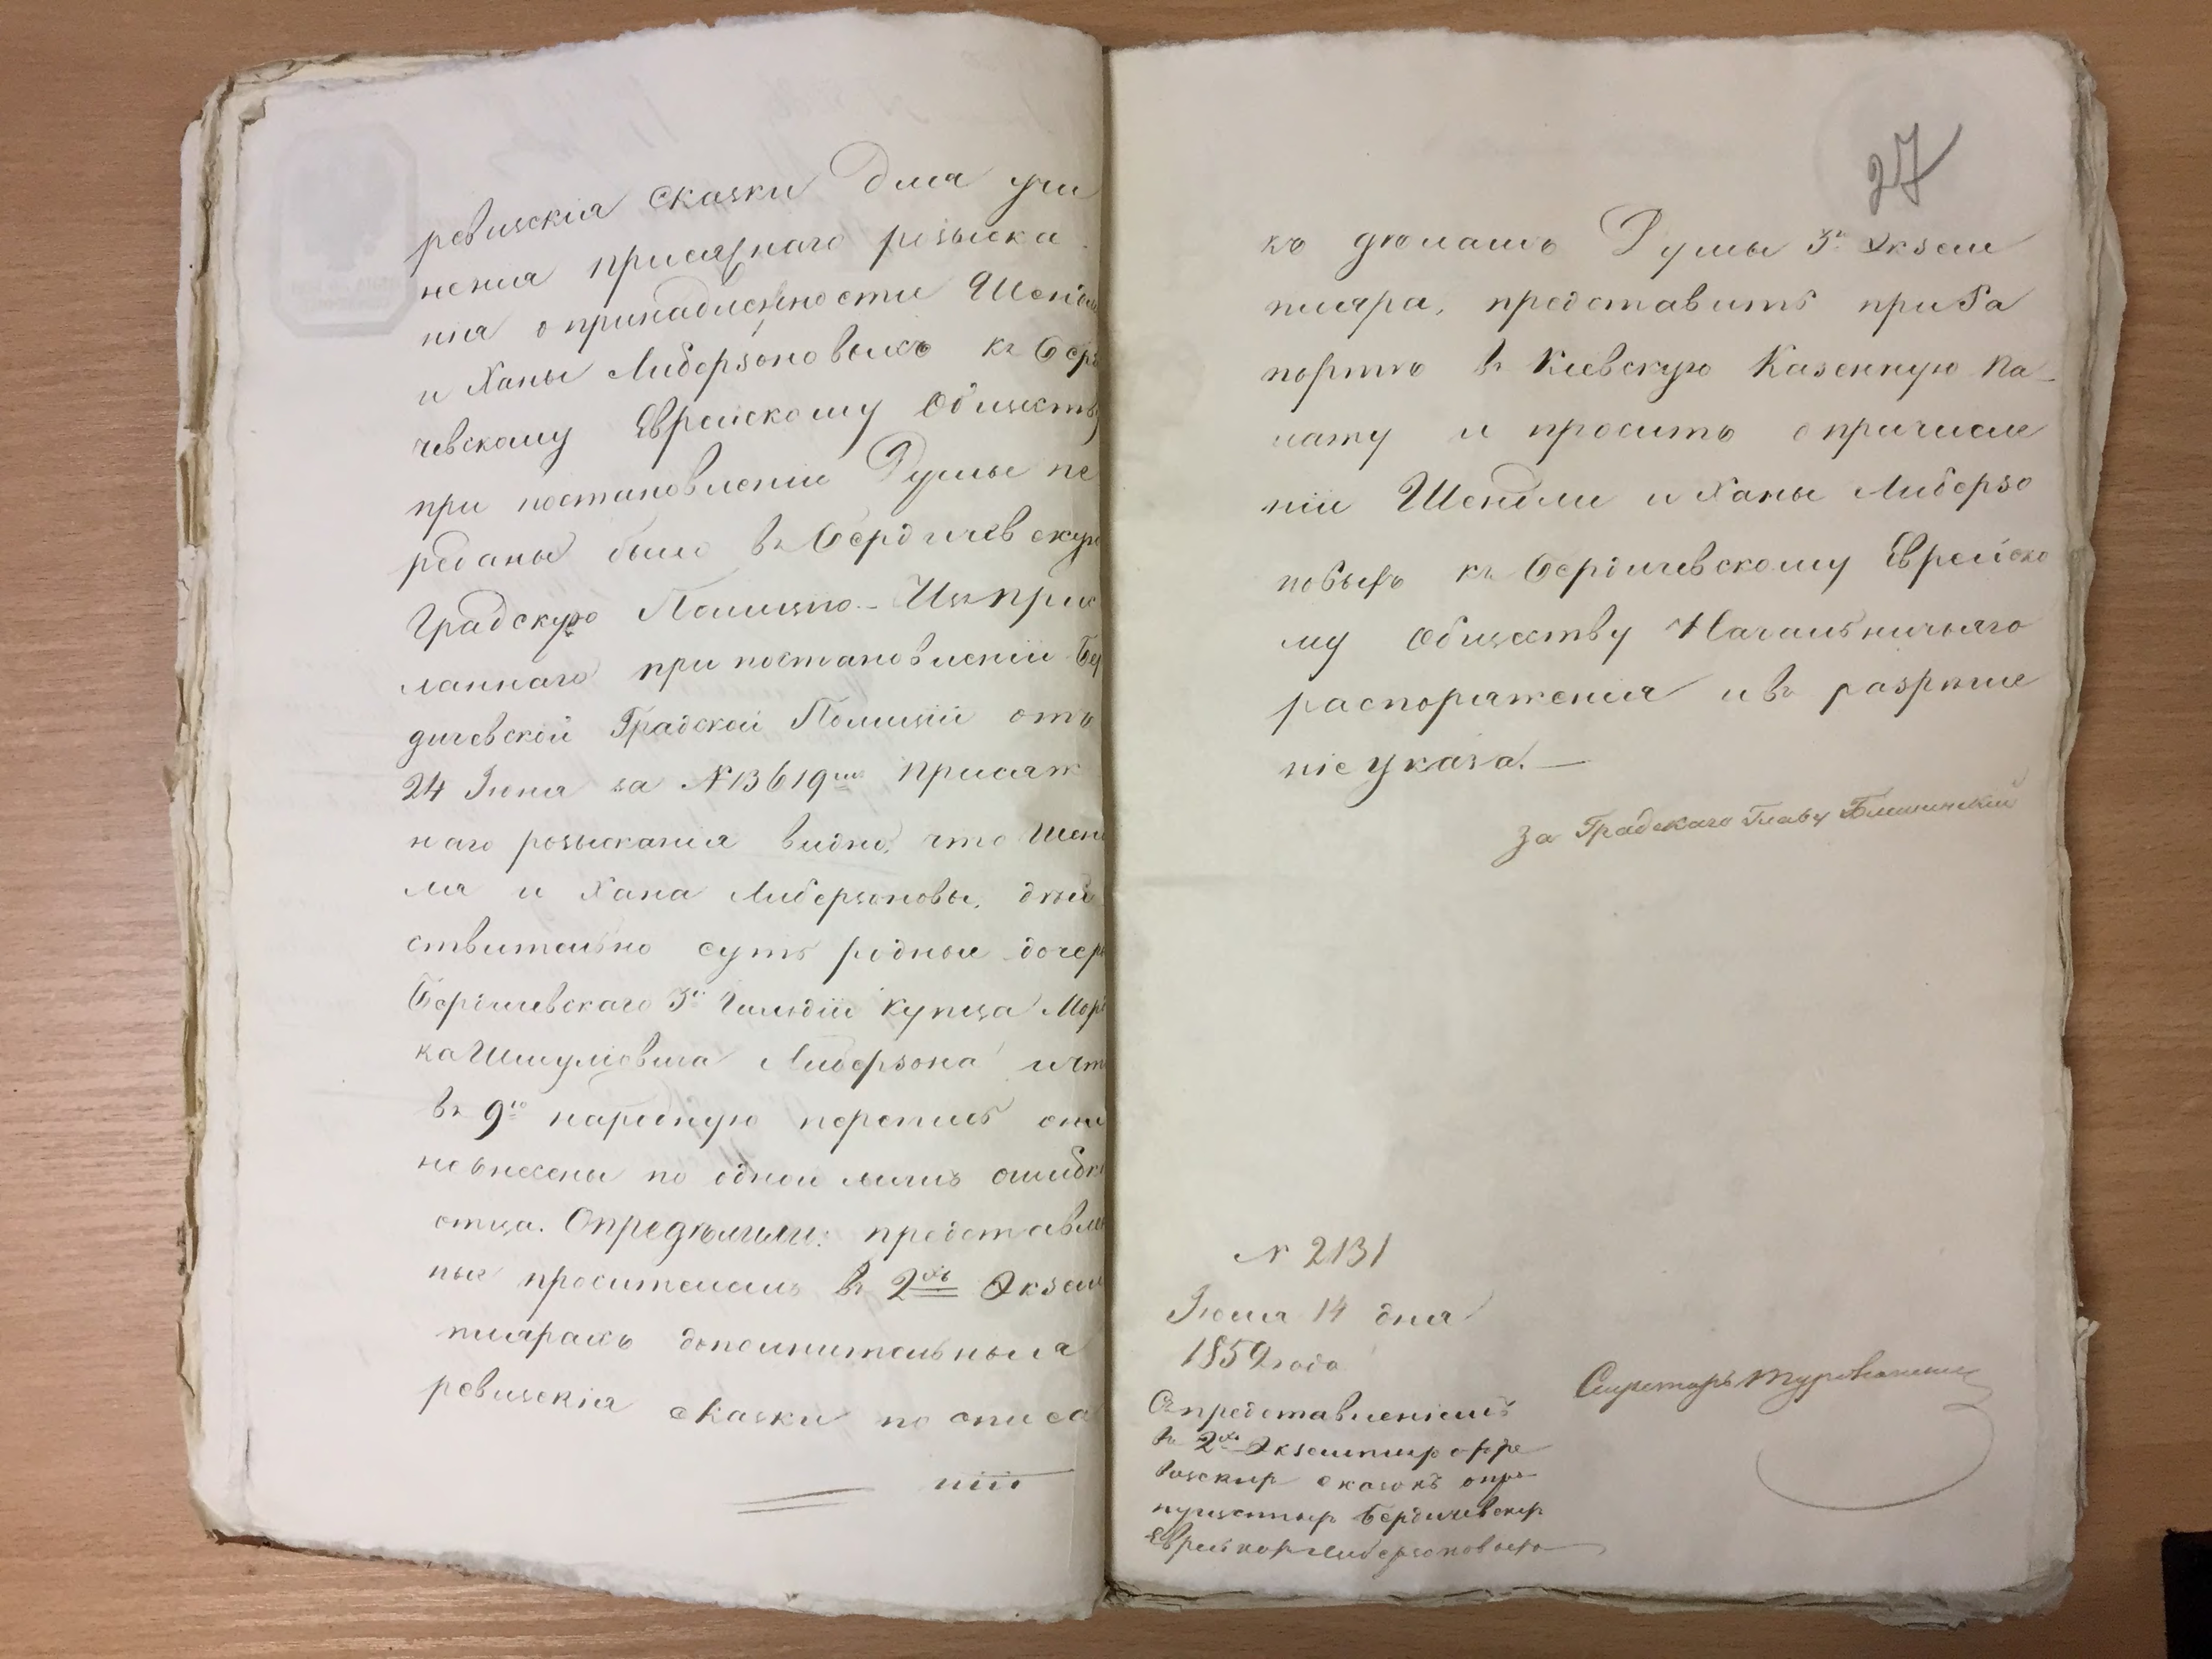 ревизскія сказки для учи
ненія присяжнаго розыска
нія о принадлежности Шендли
и Ханы Либерзоновыхъ къ Бер
чевскому Еврейскому Обществу
при постановленіи Думы пе
реданы были въ Бердичевскую
Градскую Полицію. – Изъ прис
ланнаго при постановленіи Бер
дичевской Градской Полиціи отъ
24 Іюня за № 13619мъ присяж
наго розысканія видно, что Шенд
ля и Хана Либерзоновы, дѣй
ствительно суть родные дочери
Бердичевскаго 3й Гильдіи купца Мор
ка Шмуліовича Либерзона и что
въ 9ю народную перепись они
не внесены по одной лишь ошибкѣ
отца. Опредѣлили: представлен
ные просителемъ въ 2хъ Экзем
плярахъ дополнительныя
ревизскія сказки по описа
ніи
27
къ дѣламъ Думы 3го Экзем
пляра, представить при Ра
портѣ въ Кіевскую Казенную Па–
лату и просить о причисле
ніи Шендли и Ханы Либерзо
новыхъ къ Бердичевскому Еврейско
му Обществу Начальничьяго
распоряженія и въ разрѣше
ніе указа. —
За Градскаго Главу
№ 2131
Іюля 14 дня
1859 года
Секретарь
Съ представленіемъ
въ 2хъ Экземплярахъ ре
визскихъ сказокъ опро–
пущенныхъ Бердичевскихъ
Еврейкахъ Либерзоновыхъ